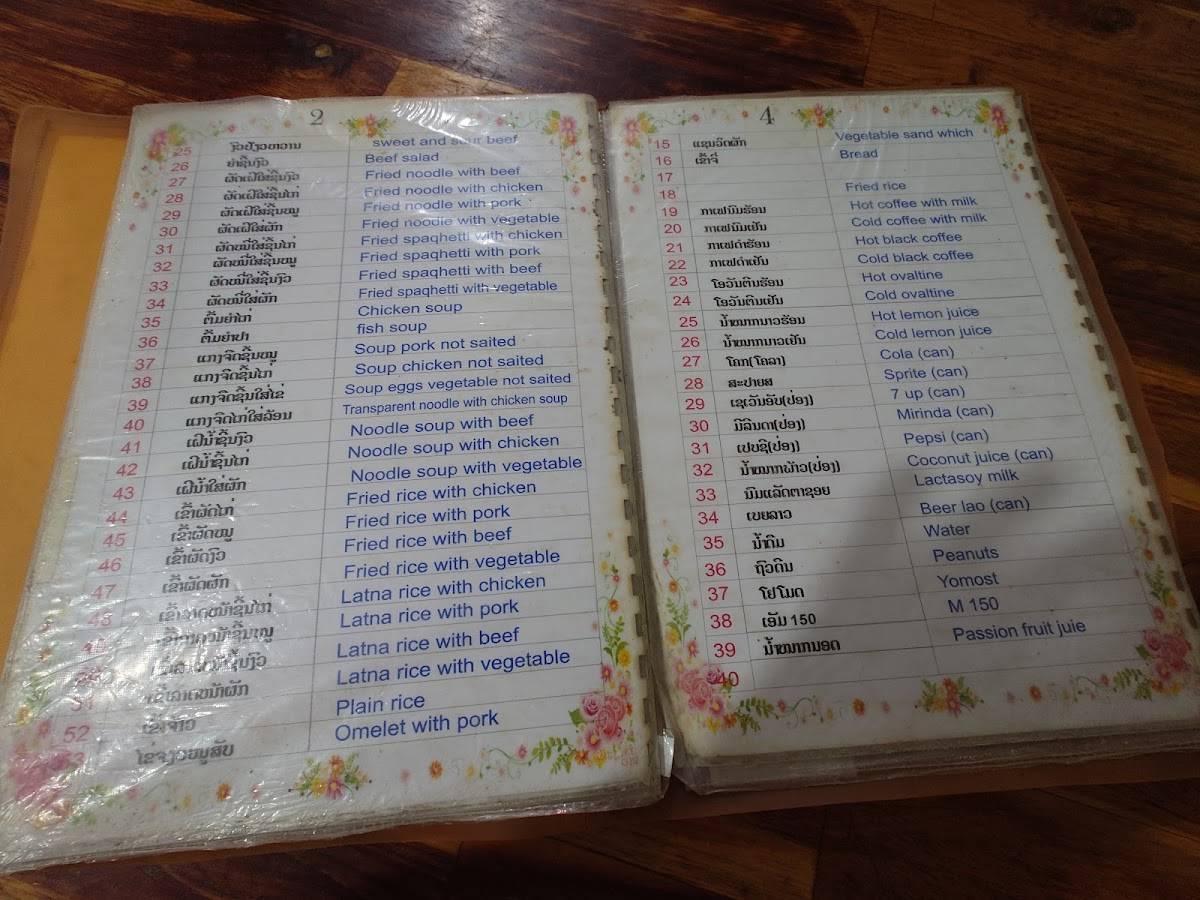 2
25 ງົວປັ່ງວຫວານ sweet and sour beef
26 ຍຳຊີ້ນງົວ Beef salad
27 ຜັດເຝີໃສ່ຊີ້ນງົວ Fried noodle with beef
28 ຜັດເຝີໃສ່ຊີ້ນໄກ່ Fried noodle with chicken
29 ຜັດເຝີໃສ່ຊີ້ນໝູ Fried noodle with pork
30 ຜັດເຝີໃສ່ຜັກ Fried noodle with vegetable
31 ຜັດໝີ່ໃສ່ຊີ້ນໄກ່ Fried spaqhetti with chicken
32 ຜັດໝີ່ໃສ່ຊີ້ນໝູ Fried spaqhetti with pork
33 ຜັດໝີ່ໃສ່ຊີ້ນງົວ Fried spaqhetti with beef
34 ຜັດໝີ່ໃສ່ຜັກ Fried spaqhetti with vegetable
35 ຕົ້ມຍຳໄກ່ Chicken soup
36 ຕົ້ມຍຳປາ fish soup
37 ແກງຈືດຊີ້ນໝູ Soup pork not saited
38 ແກງຈືດຊີ້ນໄກ່ Soup chicken not saited
39 ແກງຈືດຊີ້ນໃສ່ໄຂ່ Soup eggs vegetable not saited
40 ແກງຈືດໄກ່ໃສ່ລ້ອນ Transparent noodle with chicken soup
41 ເຝີນ້ຳຊີ້ນງົວ Noodle soup with beef
42 ເຝີນ້ຳຊີ້ນໄກ່ Noodle soup with chicken
43 ເຝີນ້ຳໃສ່ຜັກ Noodle soup with vegetable
44 ເຂົ້າຜັດໄກ່ Fried rice with chicken
45 ເຂົ້າຜັດໝູ Fried rice with pork
46 ເຂົ້າຜັດງົວ Fried rice with beef
47 ເຂົ້າຜັດຜັກ Fried rice with vegetable
ເຂົ້າລາດໜ້າຊີ້ນໄກ່ Latna rice with chicken
ເຂົ້າລາດໜ້າຊີ້ນໝູ Latna rice with pork
ເຂົ້າລາດໜ້າຊີ້ນງົວ Latna rice with beef
ເຂົ້າລາດໜ້າຜັກ Latna rice with vegetable
52 ເຂົ້າຈ້າວ Plain rice
ໄຂ່ຈຽວໝູສັບ Omelet with pork
4
15 ແຊນວິດຜັກ Vegetable sand which
16 ເຂົ້າຈີ່ Bread
17
18 Fried rice
19 ກາເຟນົມຮ້ອນ Hot coffee with milk
20 ກາເຟນົມເຢັນ Cold coffee with milk
21 ກາເຟດຳຮ້ອນ Hot black coffee
22 ກາເຟດຳເຢັນ Cold black coffee
23 ໂອວັນຕິນຮ້ອນ Hot ovaltine
24 ໂອວັນຕິນເຢັນ Cold ovaltine
25 ນ້ຳໝາກນາວຮ້ອນ Hot lemon juice
26 ນ້ຳໝາກນາວເຢັນ Cold lemon juice
27 ໂຄກ(ໂຄລາ) Cola (can)
28 ສະປາຍສ Sprite (can)
29 ເຊເວັນອັບ(ປ່ອງ) 7 up (can)
30 ມິລິນດາ(ປ່ອງ) Mirinda (can)
31 ເປບຊີ(ປ່ອງ) Pepsi (can)
32 ນ້ຳໝາກພ້າວ(ປ່ອງ) Coconut juice (can)
33 ນົມແລັດຕາຊອຍ Lactasoy milk
34 ເບຍລາວ Beer lao (can)
35 ນ້ຳດື່ມ Water
36 ຖົ່ວດິນ Peanuts
37 ໂຢໂມດ Yomost
38 ເອັມ 150 M 150
39 ນ້ຳໝາກນອດ Passion fruit juie
40